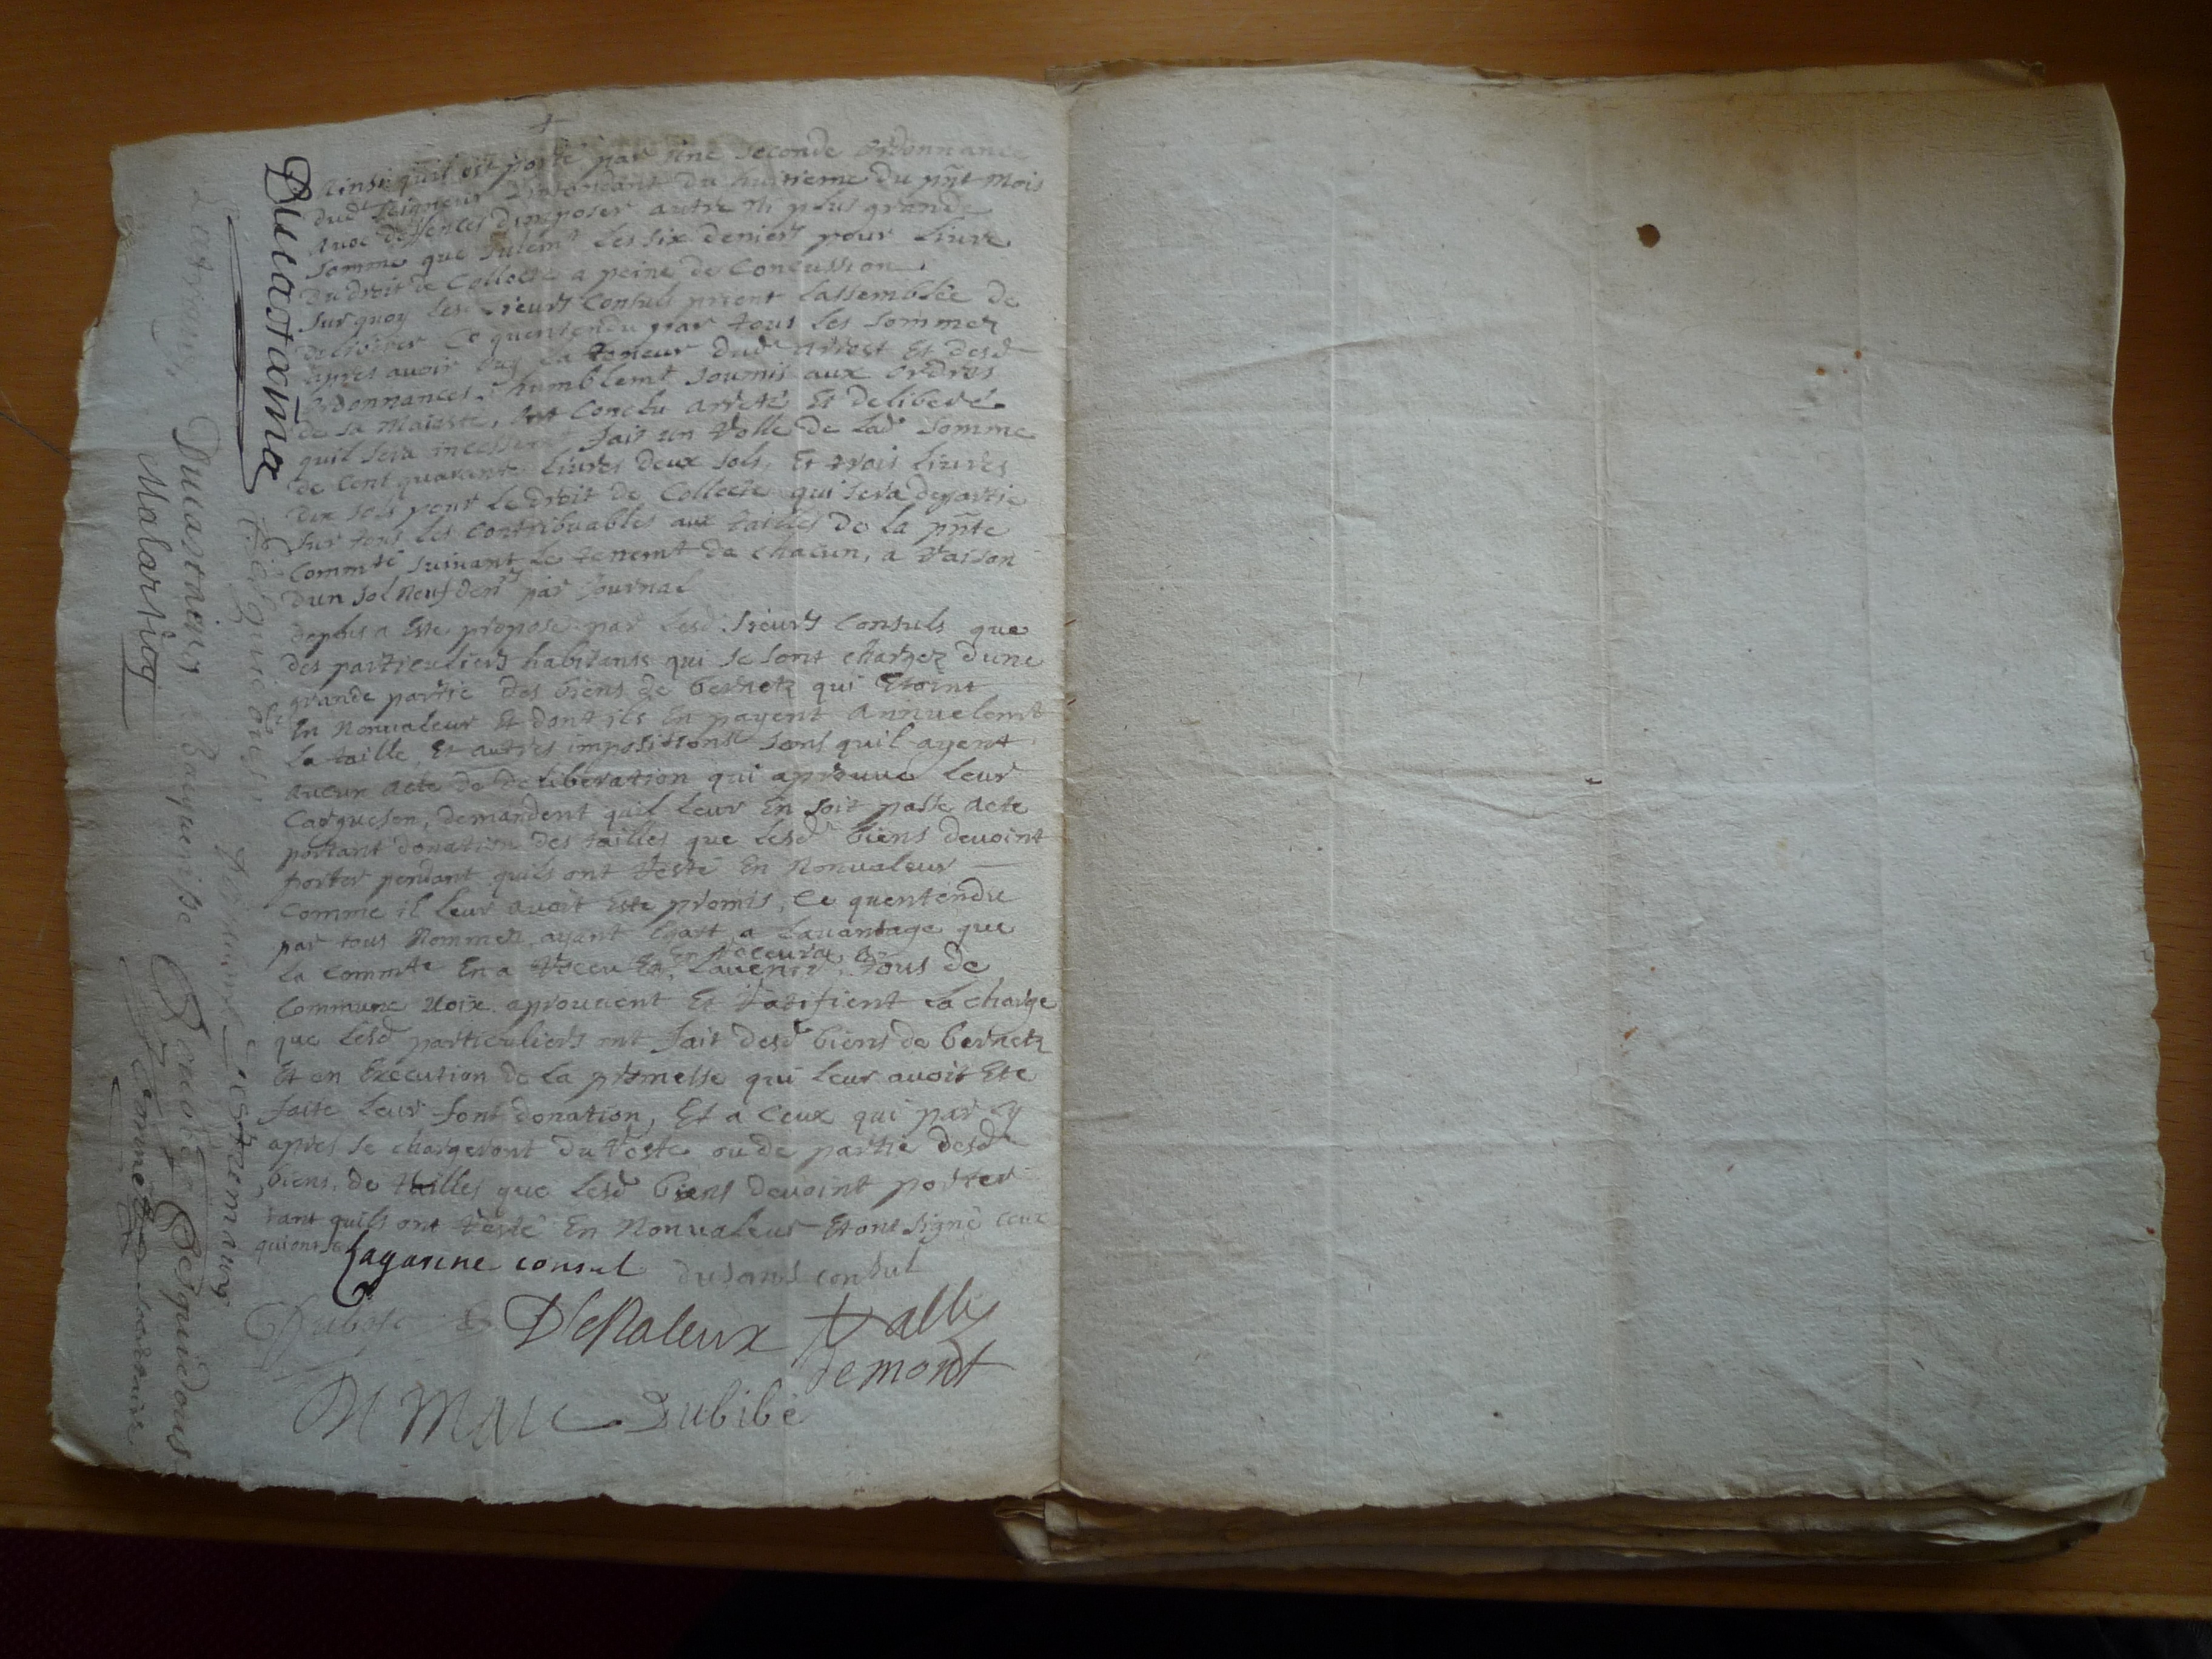 +
Ainsi quil est porté par une seconde ordonnance
dud. Seigneur Intendant du huitieme du pnt mois
avec deffences dimposer autre ni plus grande
somme que sulemt les six deniers pour livre
du droit de Collecte a peine de Concussion
sur quoy les sieurs Consuls prient lassemblée de
deliberer Ce quentendu par tous les sommez
apres avoir ouy la teneur dud. arrest Et desd.
ordonnances, humblemt soumis aux ordres
de sa Majesté, ont Conclu arreté Et deliberé
quil sera incessemt fait un Rolle de lad. somme
de Cent quarante livres deux sols, Et trois livres
dix sols pour le droit de Collecte qui sera departie
sur tous les Contribuables aux tailles de la pnte
Commté suivant le tenemt de chacun, a raison
dun sol neuf denrs par Journal
deplus a Esté proposé par lesd. sieurs Consuls que
des particuliers habitants qui se sont chargez dune
grande partie des biens de bernetz qui Etoint
En Nonvaleur Et dont ils En payent annuelemt
la taille Et autres impositions sans quil ayent
aucun acte de deliberation qui aprouve leur
Carguesen, demandent quil leur En soit passé acte
portant donation des tailles que lesd. biens devoint
porter pendant quils ont resté En Nonvaleur
Comme il leur avoit Esté promis, Ce quentendu
par tous Nommez ayant Egart a lavantage que
la Commté En a receu Et En recevra a
lavenir, tous de
Commune Voix aprouvent Et ratifient la charge
que lesd. particuliers ont fait desd. biens de bernetz
Et en Execution de la promesse qui leur avoit Eté
faite leur font donation, Et a Ceux qui par cy
apres se chargeront du reste ou de partie desd.
biens, de tailles que lesd. biens devoint porter
tant quils ont resté En Nonvaleur Et ont signé ceux
qui ont sc
Lagarene consul dusans consul
D'esRaleux valle
demont
De Marc Dubibé
Ducastaing
Ducastaing
Malartiog
Desquidous